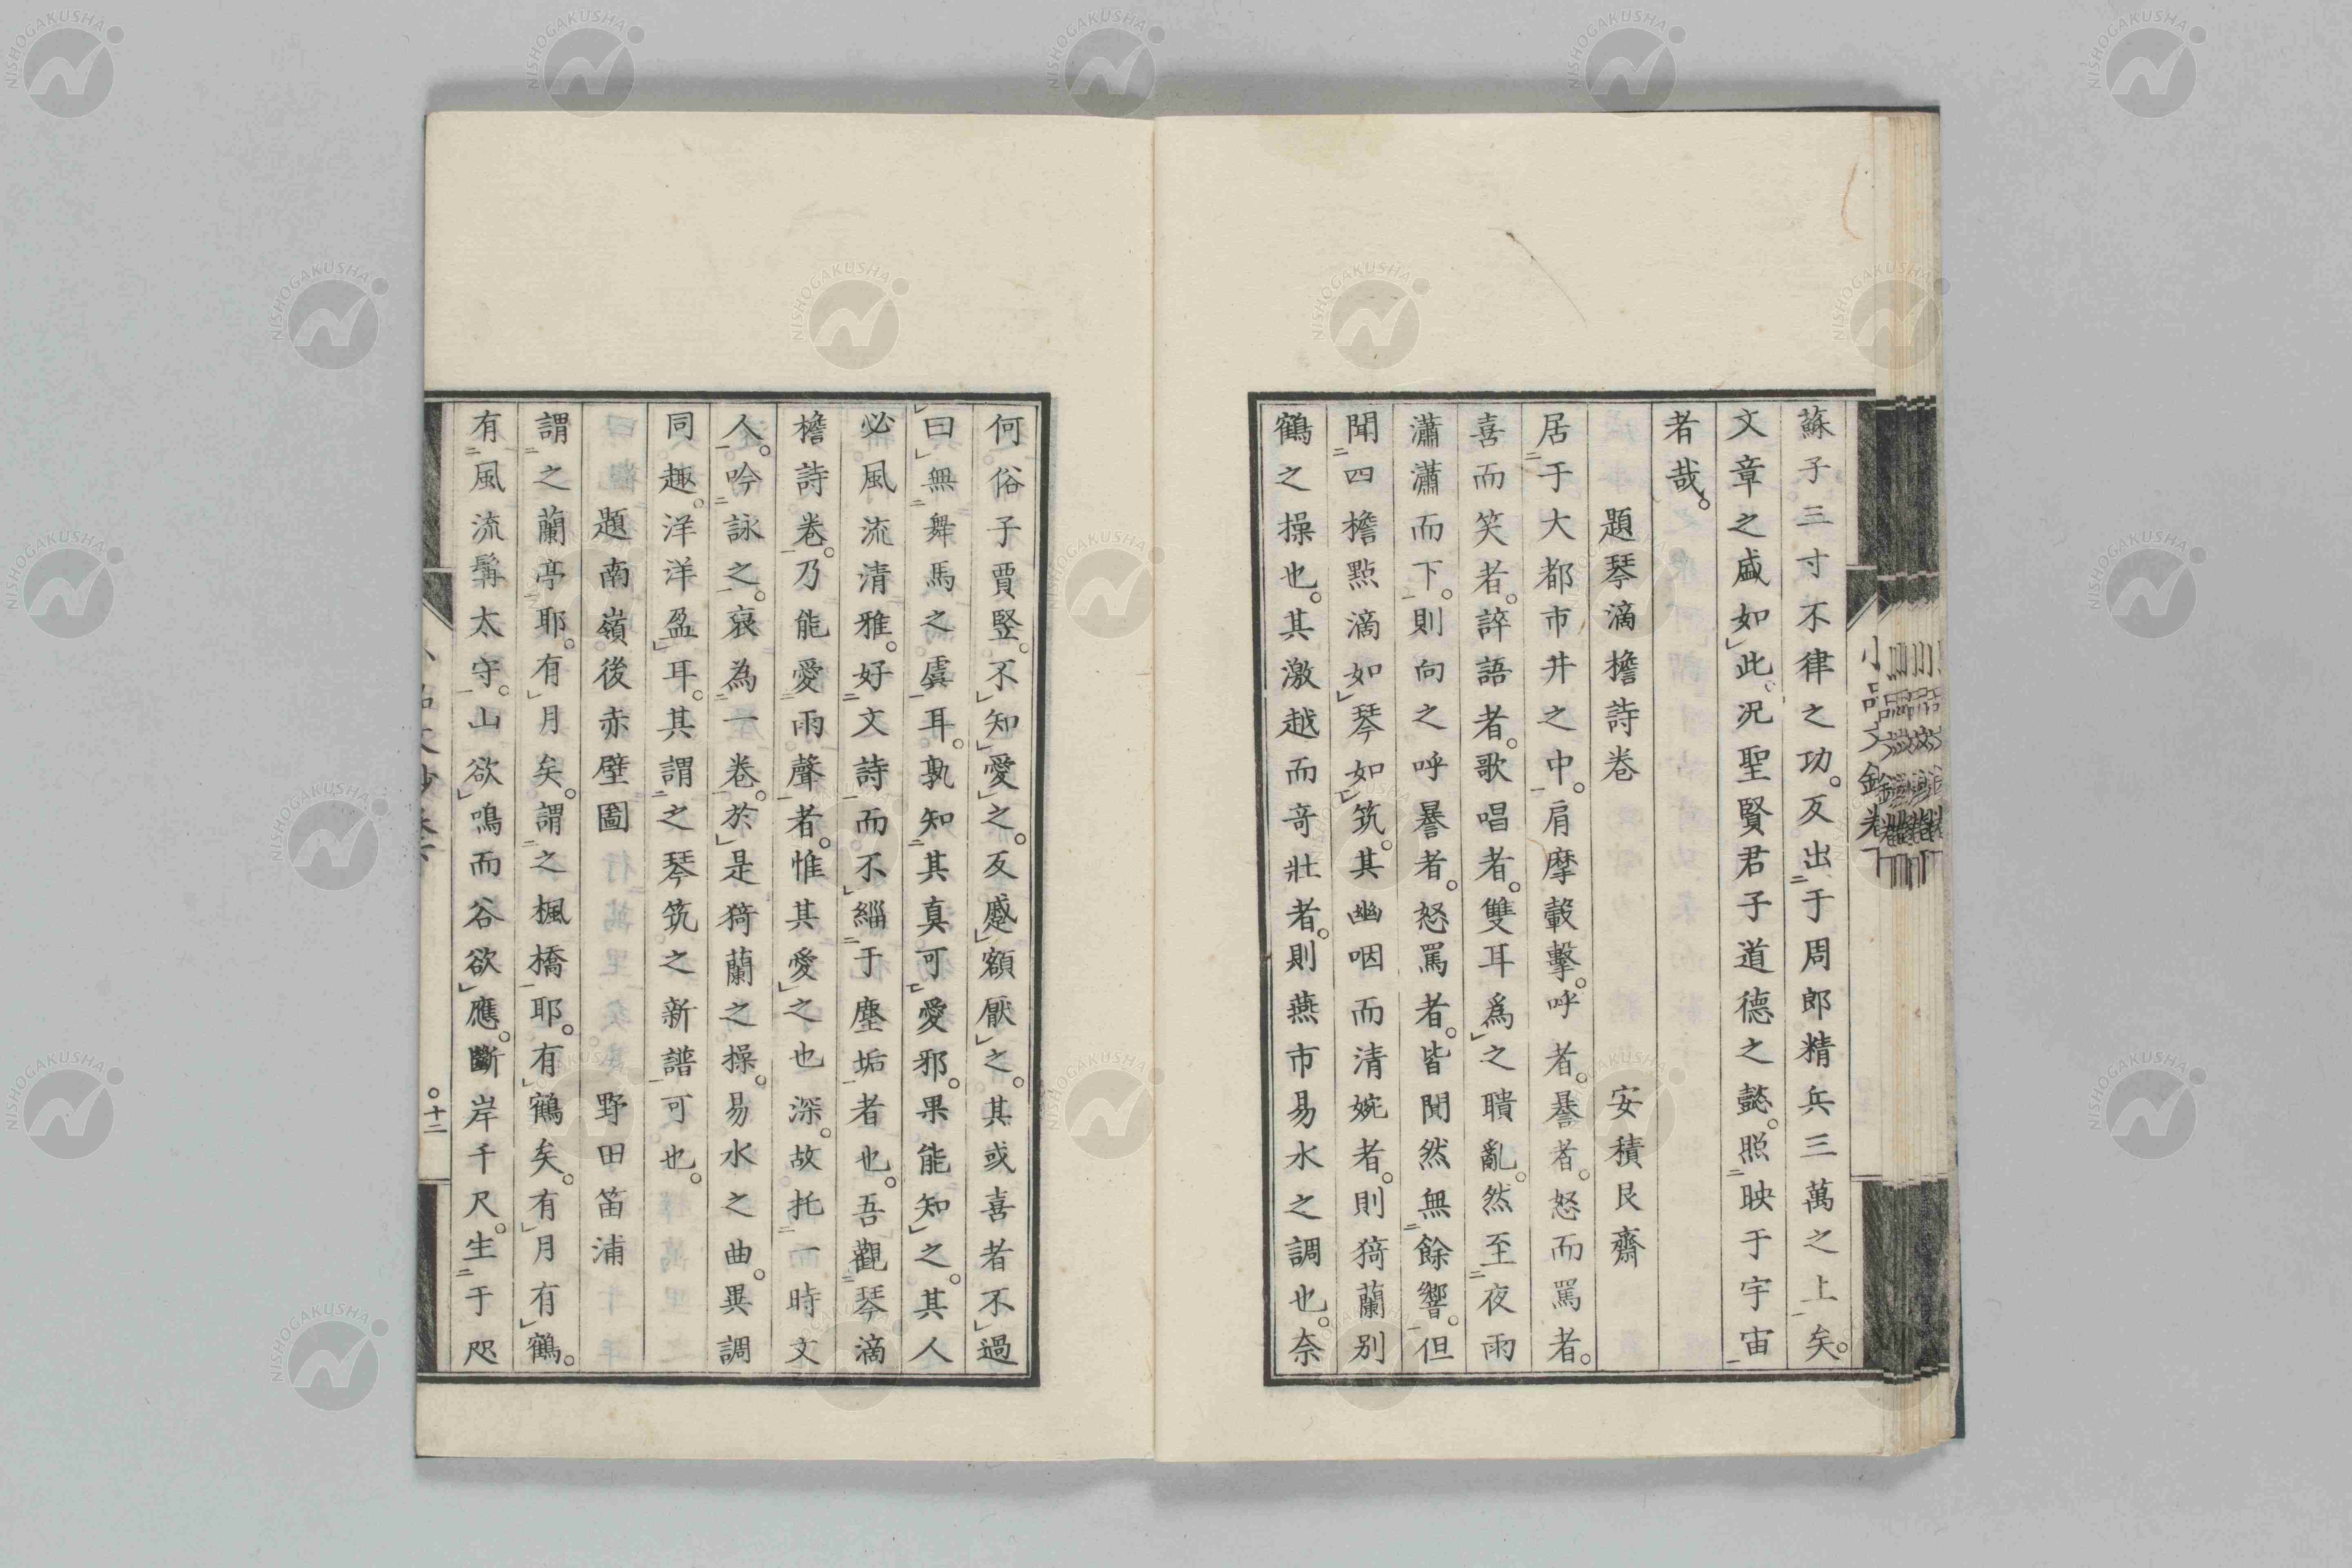 蘇子三寸不律之功。反出于周郎精兵三萬之上矣。
文章之盛如此。况聖賢君子道德之懿。照映于宇宙
者哉。
題琴滴檐詩卷　安積艮齋
居于大都市井之中。肩摩轂擊。呼者。㬥者。怒而罵者。
喜而笑者。誶語者。歌唱者。雙耳爲之聵亂。然至夜雨
瀟瀟而下。則向之呼㬥者。怒罵者。皆閴然無餘響。但
聞四檐點滴如琴如筑。其幽咽而清婉者。則猗蘭別
鶴之操也。其激越而奇壯者。則燕市易水之調也。奈
何俗子賈竪。不知愛之。反蹙額厭之。其或喜者不過
曰無舞馬之虞耳。孰知其真可愛邪。果能知之。其人
必風流清雅。好文詩而不緇于塵垢者也。吾觀琴滴
檐詩卷。乃能愛雨聲者。惟其愛之也深。故托一時文
人。吟詠之。裒為一卷。於是猗蘭之操。易水之曲。異調
同趣。洋洋盈耳。其謂之琴筑之新譜可也。
題南嶺後赤壁圖　野田笛浦
謂之蘭亭耶。有月矣。謂之楓橋耶。有鶴矣。有月有鶴。
有風流髯太守。山欲鳴而谷欲應。斷岸千尺。生于咫
十二
NISHOGAKUSHA